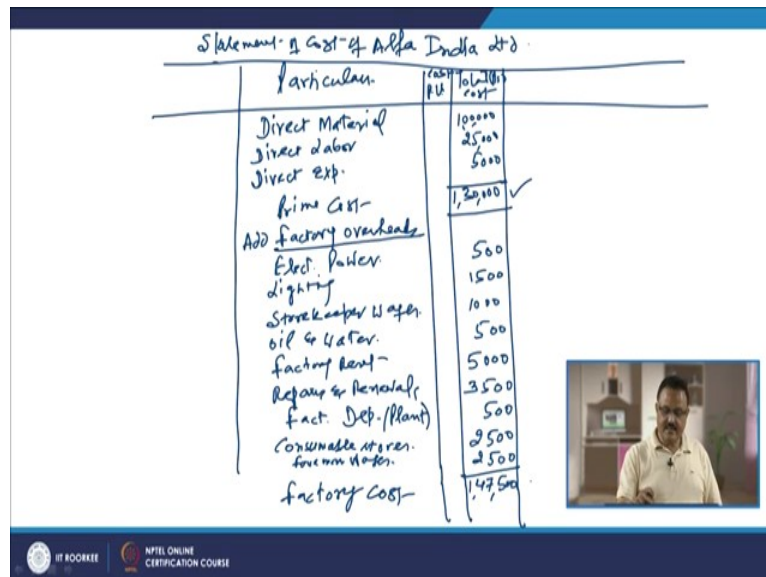 Statement of Cost of Alfa India Ltd.
Particular Cost P.U Total (Rs) Cost
Direct Material 1,00,000
Direct Labor 25,000
Direct Exp. 5000
Prime Cost 1,30,000 ✓
Add factory overheads
Elect. Power. 500
Lighting 1500
Storekeeper Wages. 1000
Oil & Water. 500
Factory Rent 5000
Repairs & Renewals 3500
Fact. Dep. (Plant) 500
Consumable stores. 2500
foremen Wages. 2500
factory Cost 1,47,500
IIT ROORKEE
NPTEL ONLINE
CERTIFICATION COURSE